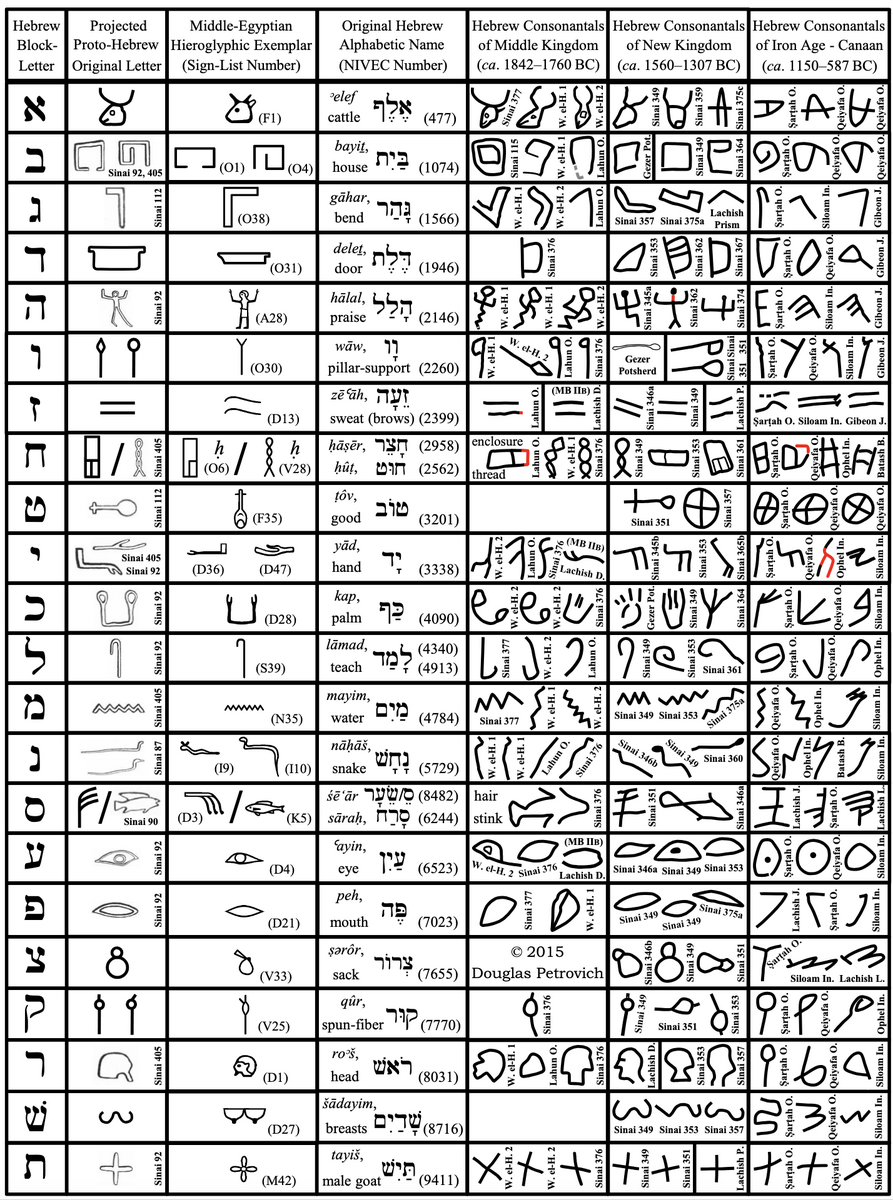 Hebrew Block-Letter
Projected Proto-Hebrew Original Letter
Middle-Egyptian Hieroglyphic Exemplar (Sign-List Number)
Original Hebrew Alphabetic Name (NIVEC Number)
Hebrew Consonantals of Middle Kingdom (ca. 1842–1760 BC)
Hebrew Consonantals of New Kingdom (ca. 1560–1307 BC)
Hebrew Consonantals of Iron Age - Canaan (ca. 1150–587 BC)
א
(F1)
ʾelef
cattle אֶלֶף (477)
Sinai 377 W. el-H. 1 W. el-H. 2
Sinai 349 Sinai 359 Sinai 375c
Ṣarṭah O. Qeiyafa O. Qeiyafa O.
ב
Sinai 92, 405
(O1) (O4)
bayiṯ,
house בַּיִת (1074)
Sinai 115 W. el-H. 1 Lahun O.
Gezer Pot. Sinai 349 Sinai 364
Ṣarṭah O. Qeiyafa O. Qeiyafa O.
ג
Sinai 112
(O38)
gāhar,
bend גָּהַר (1566)
W. el-H. 1 W. el-H. 2 Lahun O.
Sinai 357 Sinai 375a Lachish Prism
Ṣarṭah O. Siloam In. Gibeon J.
ד
(O31)
deleṯ,
door דֶּלֶת (1946)
Sinai 376
Sinai 353 Sinai 362 Sinai 367
Ṣarṭah O. Qeiyafa O. Gibeon J.
ה
Sinai 92
(A28)
hālal,
praise הָלַל (2146)
W. el-H. 1 W. el-H. 1 W. el-H. 2
Sinai 345a Sinai 362 Sinai 374
Ṣarṭah O. Siloam In. Gibeon J.
ו
(O30)
wāw,
pillar-support וָו (2260)
W. el-H. 1 W. el-H. 2 Lahun O. Sinai 376
Gezer Potsherd Sinai 351 Sinai 351
Ṣarṭah O. Qeiyafa O. Siloam In. Gibeon J.
ז
(D13)
zēʿāh,
sweat (brows) זֵעָה (2399)
Lahun O. (MB IIB) Lachish D.
Sinai 346a Sinai 349 Lachish P.
Ṣarṭah O. Siloam In. Gibeon J.
ח
/ Sinai 405
ḥ (O6) / ḥ (V28)
ḥāṣēr, חָצֵר (2958)
ḥûṭ, חוּט (2562)
enclosure thread Lahun O. W. el-H. 1 Sinai 376
Sinai 349 Sinai 353 Sinai 361
Ṣarṭah O. Qeiyafa O. Ophel In. Batash B.
ט
Sinai 112
(F35)
ṭôv,
good טוֹב (3201)
Sinai 351 Sinai 357
Ṣarṭah O. Qeiyafa O. Qeiyafa O.
י
Sinai 405
Sinai 92
(D36) (D47)
yāḏ,
hand יָד (3338)
W. el-H. 2 Lahun O. Sinai 376 (MB IIB) Lachish D.
Sinai 345b Sinai 353 Sinai 365b
Ṣarṭah O. Qeiyafa O. Ophel In. Siloam In.
כ
Sinai 92
(D28)
kap,
palm כַּף (4090)
W. el-H. 2 W. el-H. 2 Sinai 376
Gezer Pot. Sinai 349 Sinai 364
Ṣarṭah O. Qeiyafa O. Siloam In.
ל
Sinai 92
(S39)
lāmad, (4340)
teach לָמַד (4913)
Sinai 377 W. el-H. 2 Lahun O.
Sinai 349 Sinai 353 Sinai 361
Ṣarṭah O. Qeiyafa O. Ophel In.
מ
Sinai 405
(N35)
mayim,
water מַיִם (4784)
Sinai 377 W. el-H. 1 W. el-H. 2
Sinai 349 Sinai 353 Sinai 375a
Qeiyafa O. Ophel In. Siloam In.
נ
Sinai 87
(I9) (I10)
nāḥāš,
snake נָחָשׁ (5729)
W. el-H. 1 W. el-H. 1 Lahun O. Sinai 376
Sinai 346b Sinai 349 Sinai 360
Qeiyafa O. Ophel In. Batash B. Siloam In.
ס
/ Sinai 90
(D3) / (K5)
śēʿār ס/שֵׂעָר (8482)
sāraḥ, סָרַח (6244)
hair stink Sinai 376
Sinai 351 Sinai 346a
Lachish J. Ṣarṭah O. Lachish L.
ע
Sinai 92
(D4)
ʿayin,
eye עַיִן (6523)
W. el-H. 2 Sinai 376 (MB IIB) Lachish D.
Sinai 346a Sinai 349 Sinai 353
Ṣarṭah O. Qeiyafa O. Siloam In.
פ
Sinai 92
(D21)
peh,
mouth פֶּה (7023)
Sinai 377 W. el-H. 1
Sinai 349 Sinai 349 Sinai 375a
Lachish J. Ṣarṭah O. Siloam In.
צ
(V33)
ṣərôr,
sack צְרוֹר (7655)
© 2015
Douglas Petrovich
Sinai 346b Sinai 349 Sinai 351
Ṣarṭah O. Siloam In. Lachish L.
ק
(V25)
qûr,
spun-fiber קוּר (7770)
Sinai 376
Sinai 349 Sinai 351 Sinai 353
Ṣarṭah O. Qeiyafa O. Ophel In.
ר
Sinai 405
(D1)
roʾš,
head רֹאשׁ (8031)
W. el-H. 1 Lahun O. Sinai 376
Lachish D. Sinai 353 Sinai 357
Ṣarṭah O. Qeiyafa O. Siloam In.
שׁ
(D27)
šādayim,
breasts שָׁדַיִם (8716)
Sinai 349 Sinai 353 Sinai 357
Ṣarṭah O. Qeiyafa O. Siloam In.
ת
Sinai 92
(M42)
tayiš,
male goat תַּיִשׁ (9411)
W. el-H. 2 W. el-H. 2 Sinai 376
Sinai 349 Sinai 351 Lachish P.
Ṣarṭah O. Qeiyafa O. Siloam In.